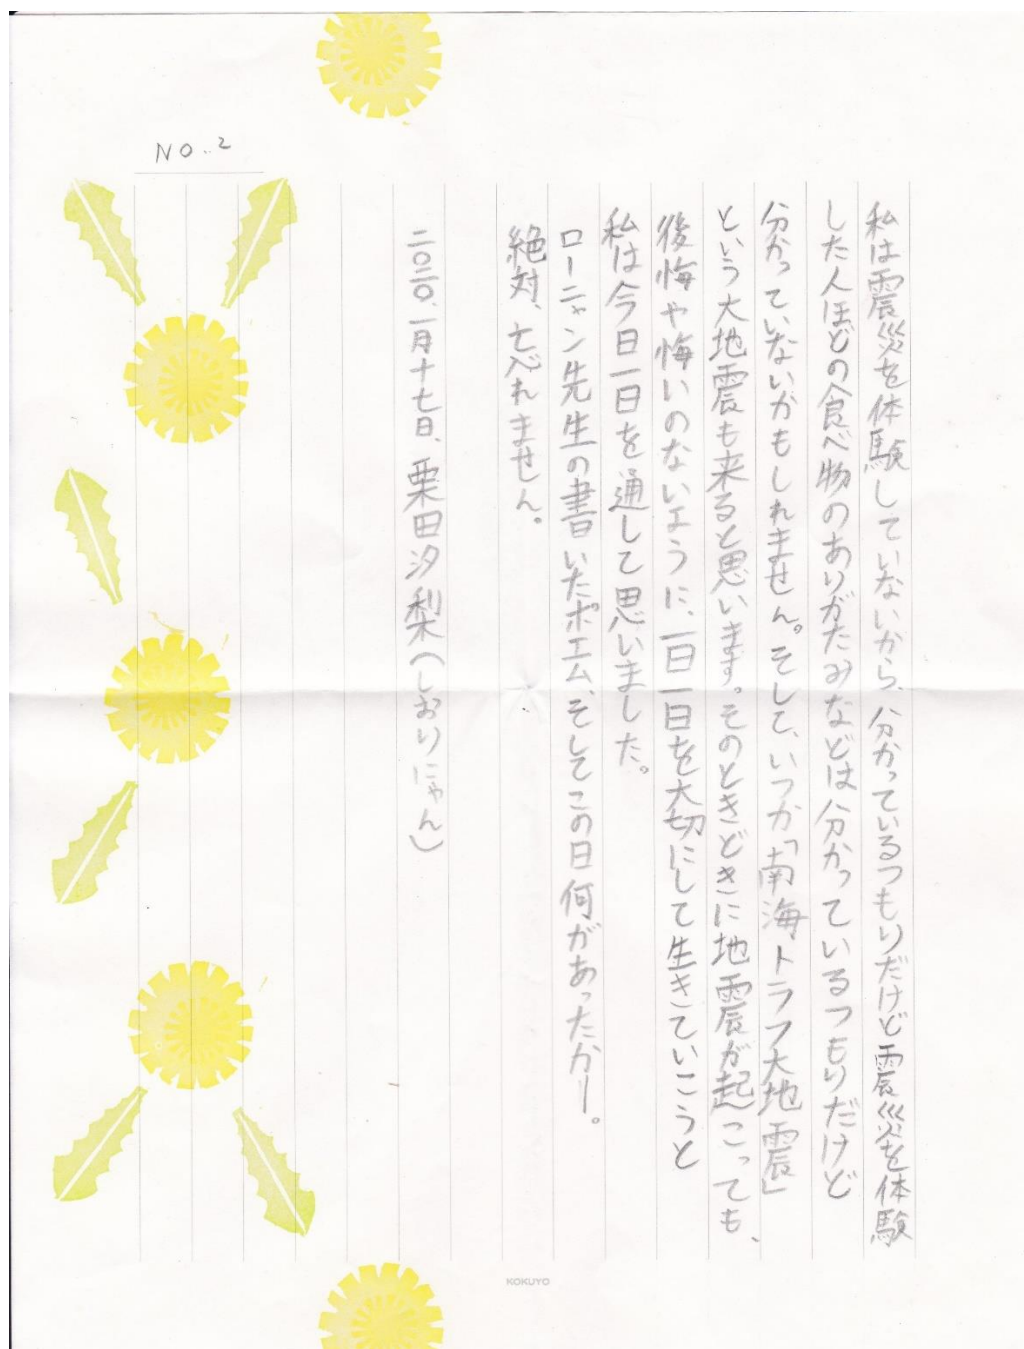 NO.2
私は震災を体験していないから、分かっているつもりだけど震災を体験
した人ほどの食べ物のありがたみなどは分かっているつもりだけど
分かっていないかもしれません。そして、いつか「南海トラフ大地震」
という大地震も来ると思います。そのときどきに地震が起こっても、
後悔や悔いのないように、一日一日を大切にして生きていこうと
私は今日一日を通して思いました。
ローニャン先生の書いたポエム、そしてこの日何があったかー。
絶対、忘れません。
二〇二〇、一月十七日、栗田汐梨(しおりにゃん)
KOKUYO